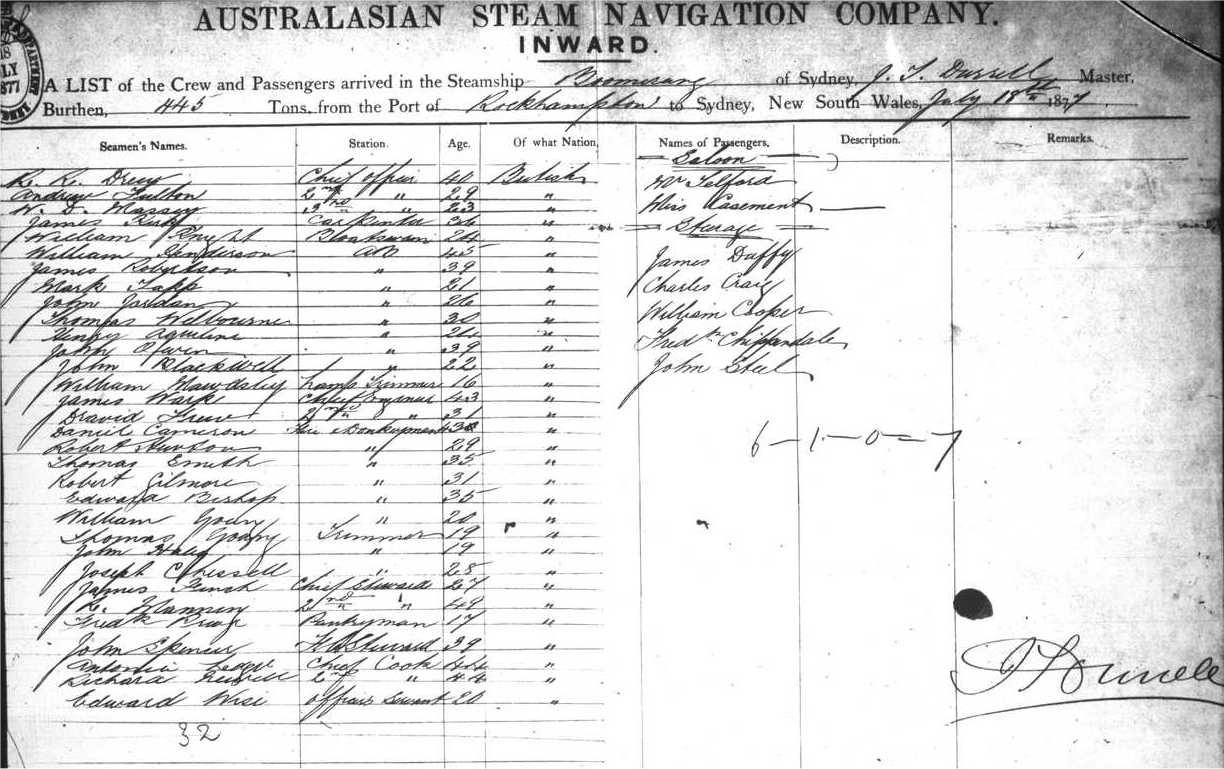 AUSTRALASIAN STEAM NAVIGATION COMPANY.
INWARD.
A LIST of the Crew and Passengers arrived in the Steamship Boomerang of Sydney, J. T. Durrell Master,
Burthen, 445 Tons, from the Port of Rockhampton to Sydney, New South Wales, July 18th 1877
Seamen's Names. Station. Age. Of what Nation, Names of Passengers, Description. Remarks.
Saloon
Chief Officer 40 British Mr Telford
Andrew Fulton 2nd " 29 "
W. D. Massey 3rd " 23 " Miss Casement
James Carpenter "
William Knight 24 " Steerage
William Henderson AB 45 "
James Robertson " 39 " James Duffy
Mark Tapp " 21 "
John Jordan " 26 " Charles Craig
Thomas Welbourne " 30 " William Cooper
Henry " "
John " 39 " Fredk Chippendale
John Blackwell " 22 " John Steel
William Mawdsley Lamp Trimmer 16 "
James Chief Engineer 43 "
2nd " 31 "
Daniel Cameron "
Robert " 29 " 6-1-0-7
Thomas Smith " 35 "
Robert Gilmore " 31 "
Edward Bishop " 35 "
William Young " 20 "
Thomas Young Trimmer 19 "
John " 19 "
Joseph Chessell " 28 "
James Chief Steward 27 "
Manning 2nd " 49 "
Fredk Pantryman 17 "
John Spencer Steward 39 "
Antonio Chief Cook 44 "
Richard 2nd " "
Edward Wise Officers Servant 20 "
32